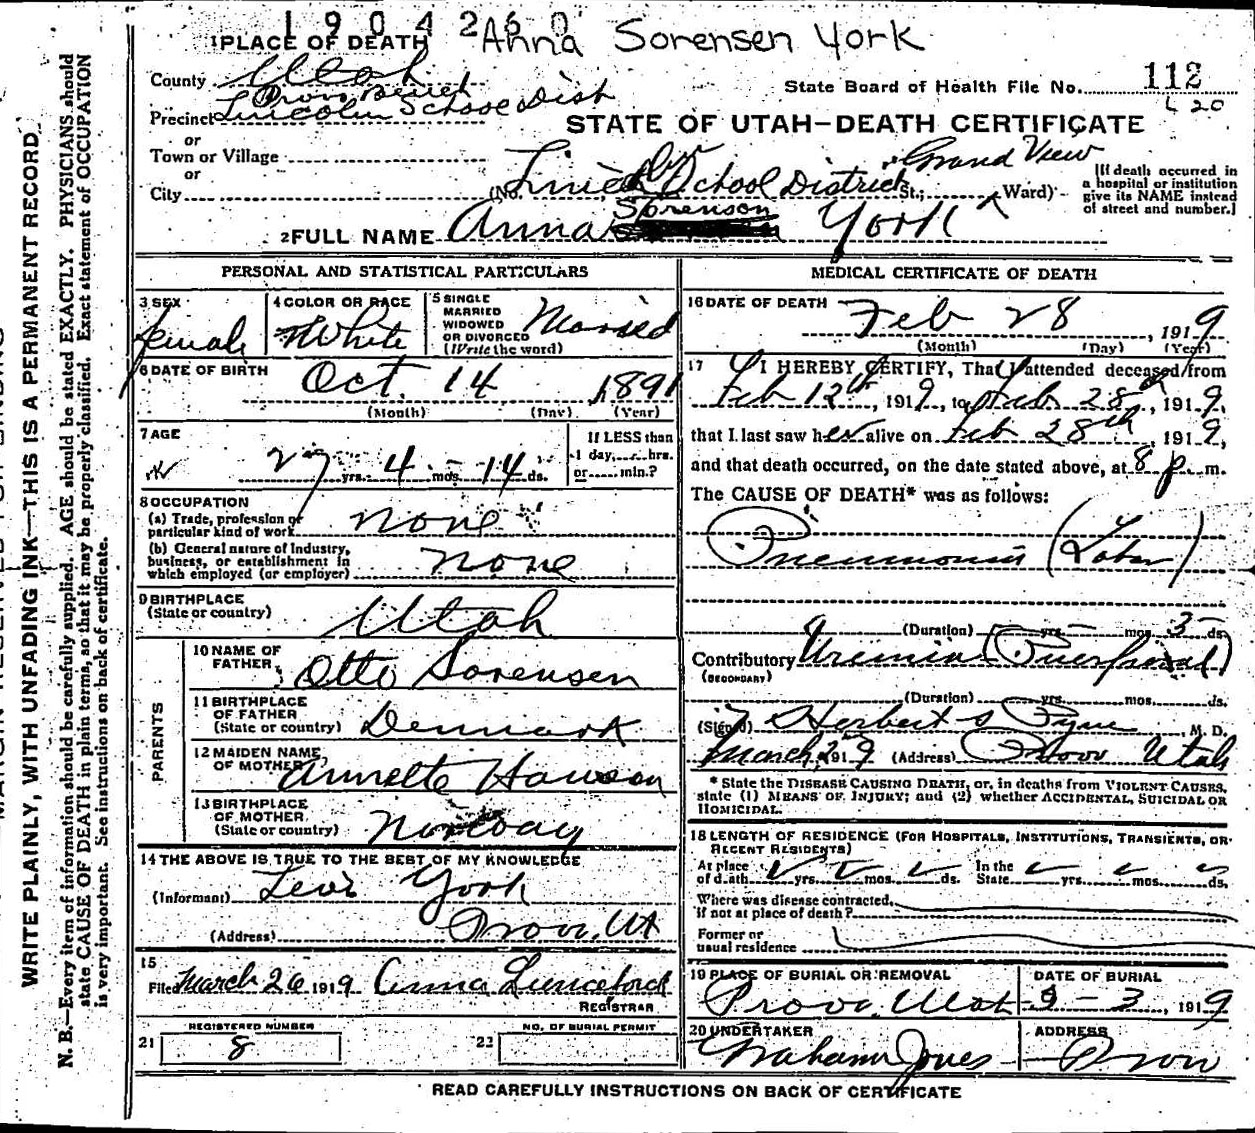 1904260
Anna Sorensen York
1 PLACE OF DEATH
County Utah
Provo Bench
Precinct Lincoln School Dist
or
Town or Village
or
City
State Board of Health File No. 112
L 20
STATE OF UTAH—DEATH CERTIFICATE
(No. School District St.; Ward)
Grand View
[If death occurred in a hospital or institution give its NAME instead of street and number.]
Sorenson
2 FULL NAME Anna York
PERSONAL AND STATISTICAL PARTICULARS
3 SEX
female
4 COLOR OR RACE
White
5 SINGLE
MARRIED
WIDOWED
OR DIVORCED
(Write the word)
Married
6 DATE OF BIRTH
Oct. 14 1891
(Month) (Day) (Year)
7 AGE
27 yrs. 4 mos. 14 ds.
If LESS than
1 day, hrs.
or min.?
8 OCCUPATION
(a) Trade, profession or
particular kind of work none
(b) General nature of Industry,
business, or establishment in
which employed (or employer) none
9 BIRTHPLACE
(State or country) Utah
PARENTS
10 NAME OF
FATHER Otto Sorensen
11 BIRTHPLACE
OF FATHER
(State or country) Denmark
12 MAIDEN NAME
OF MOTHER Annette Hanson
13 BIRTHPLACE
OF MOTHER
(State or country) Norway
14 THE ABOVE IS TRUE TO THE BEST OF MY KNOWLEDGE
(Informant) Levi York
(Address) Provo, Ut
15
Filed March 26 1919 Anna
REGISTRAR
REGISTERED NUMBER
21 8
NO. OF BURIAL PERMIT
22
MEDICAL CERTIFICATE OF DEATH
16 DATE OF DEATH
Feb 28, 1919
(Month) (Day) (Year)
17 I HEREBY CERTIFY, That I attended deceased from
Feb 12th, 1919, to Feb 28th, 1919,
that I last saw her alive on Feb 28th, 1919,
and that death occurred, on the date stated above, at 8 p. m.
The CAUSE OF DEATH* was as follows:
Pneumonia (Lobar)
(Duration) yrs. mos. 3 ds.
Contributory Uremia (Puerperal)
(SECONDARY)
(Duration) yrs. mos. ds.
(Signed) Herbert S Pyne, M. D.
March, 2 1919 (Address) Provo Utah
* State the DISEASE CAUSING DEATH, or, in deaths from VIOLENT CAUSES,
state (1) MEANS OF INJURY; and (2) whether ACCIDENTAL, SUICIDAL OR
HOMICIDAL.
18 LENGTH OF RESIDENCE (FOR HOSPITALS, INSTITUTIONS, TRANSIENTS, OR
RECENT RESIDENTS)
At place
of death yrs. mos. ds.
In the
State yrs. mos. ds.
Where was disease contracted,
if not at place of death?
Former or
usual residence
19 PLACE OF BURIAL OR REMOVAL
Provo, Utah
DATE OF BURIAL
3-3, 1919
20 UNDERTAKER
Graham Jones
ADDRESS
Provo
READ CAREFULLY INSTRUCTIONS ON BACK OF CERTIFICATE
WRITE PLAINLY, WITH UNFADING INK—THIS IS A PERMANENT RECORD
N. B.—Every item of information should be carefully supplied. AGE should be stated EXACTLY. PHYSICIANS should
state CAUSE OF DEATH in plain terms, so that it may be properly classified. Exact statement of OCCUPATION
is very important. See instructions on back of certificate.